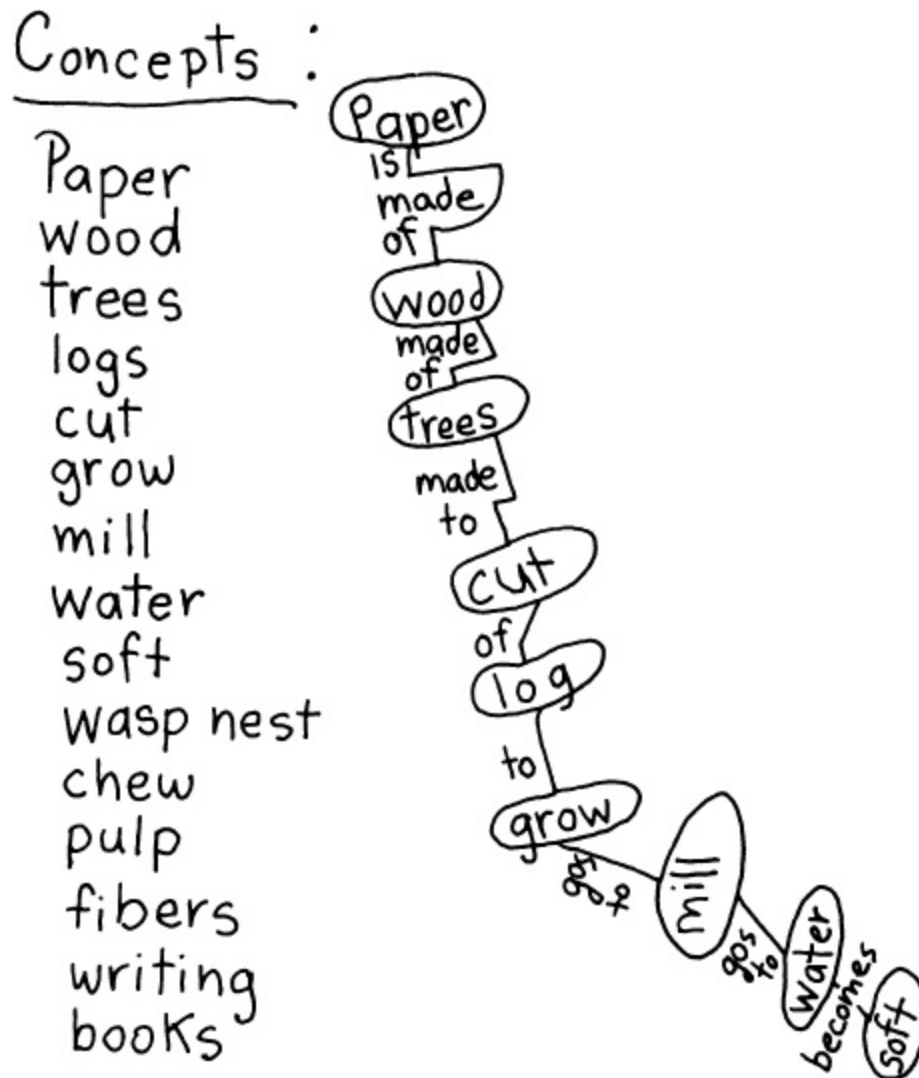 Concepts :
Paper
wood
trees
logs
cut
grow
mill
water
soft
wasp nest
chew
pulp
fibers
writing
books
Paper
is
made
of
wood
made
of
trees
made
to
cut
of
log
to
grow
gos to
mill
gos to
water
becomes
soft